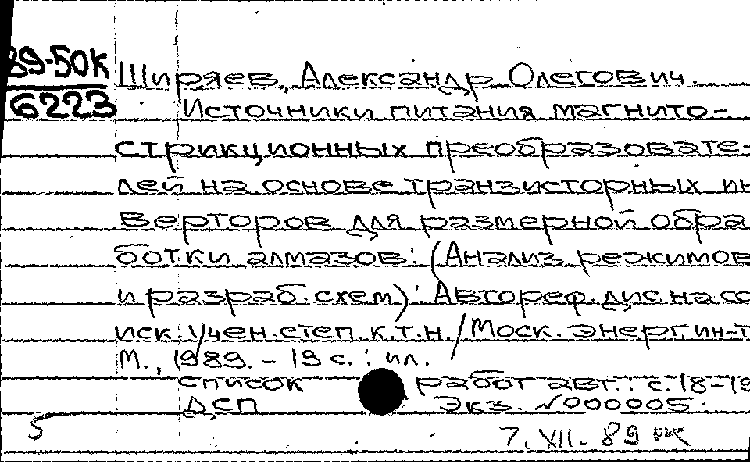 89-50К
6223
Ширяев, Александр Олегович.
Источники питания магнито-
стрикционных преобразовате-
лей на основе транзисторных ин
верторов для размерной обра
ботки алмазов: (Анализ режимов
и разраб. схем): Автореф. дис. на со
иск. учен. степ. к.т.н. / Моск. энерг. ин-т
М., 1989. - 19 с. : ил.
Список работ авт.: с. 18-19
ДСП Экз. №000005.
5 7. XII. 89